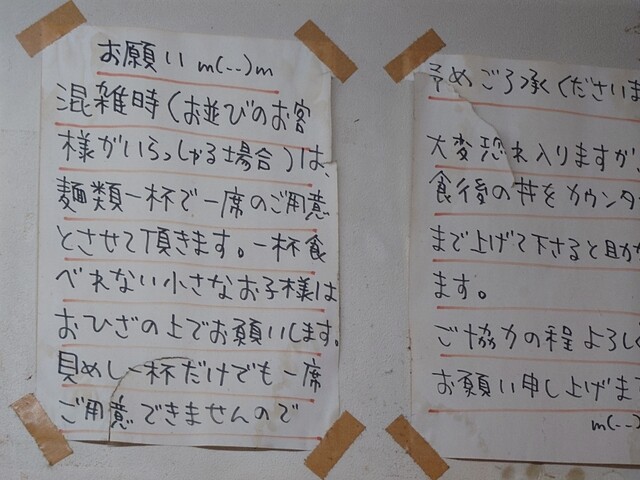 お願い m(--)m
混雑時(お並びのお客
様がいらっしゃる場合)は、
麺類一杯で一席のご用意
とさせて頂きます。一杯食
べれない小さなお子様は
おひざの上でお願いします。
具めし一杯だけでも一席
ご用意できませんので
予めご了承くださいま
大変恐れ入りますが、
食後の丼をカウンタ
まで上げて下さると助か
ます。
ご協力の程よろしく
お願い申し上げま
m(--)